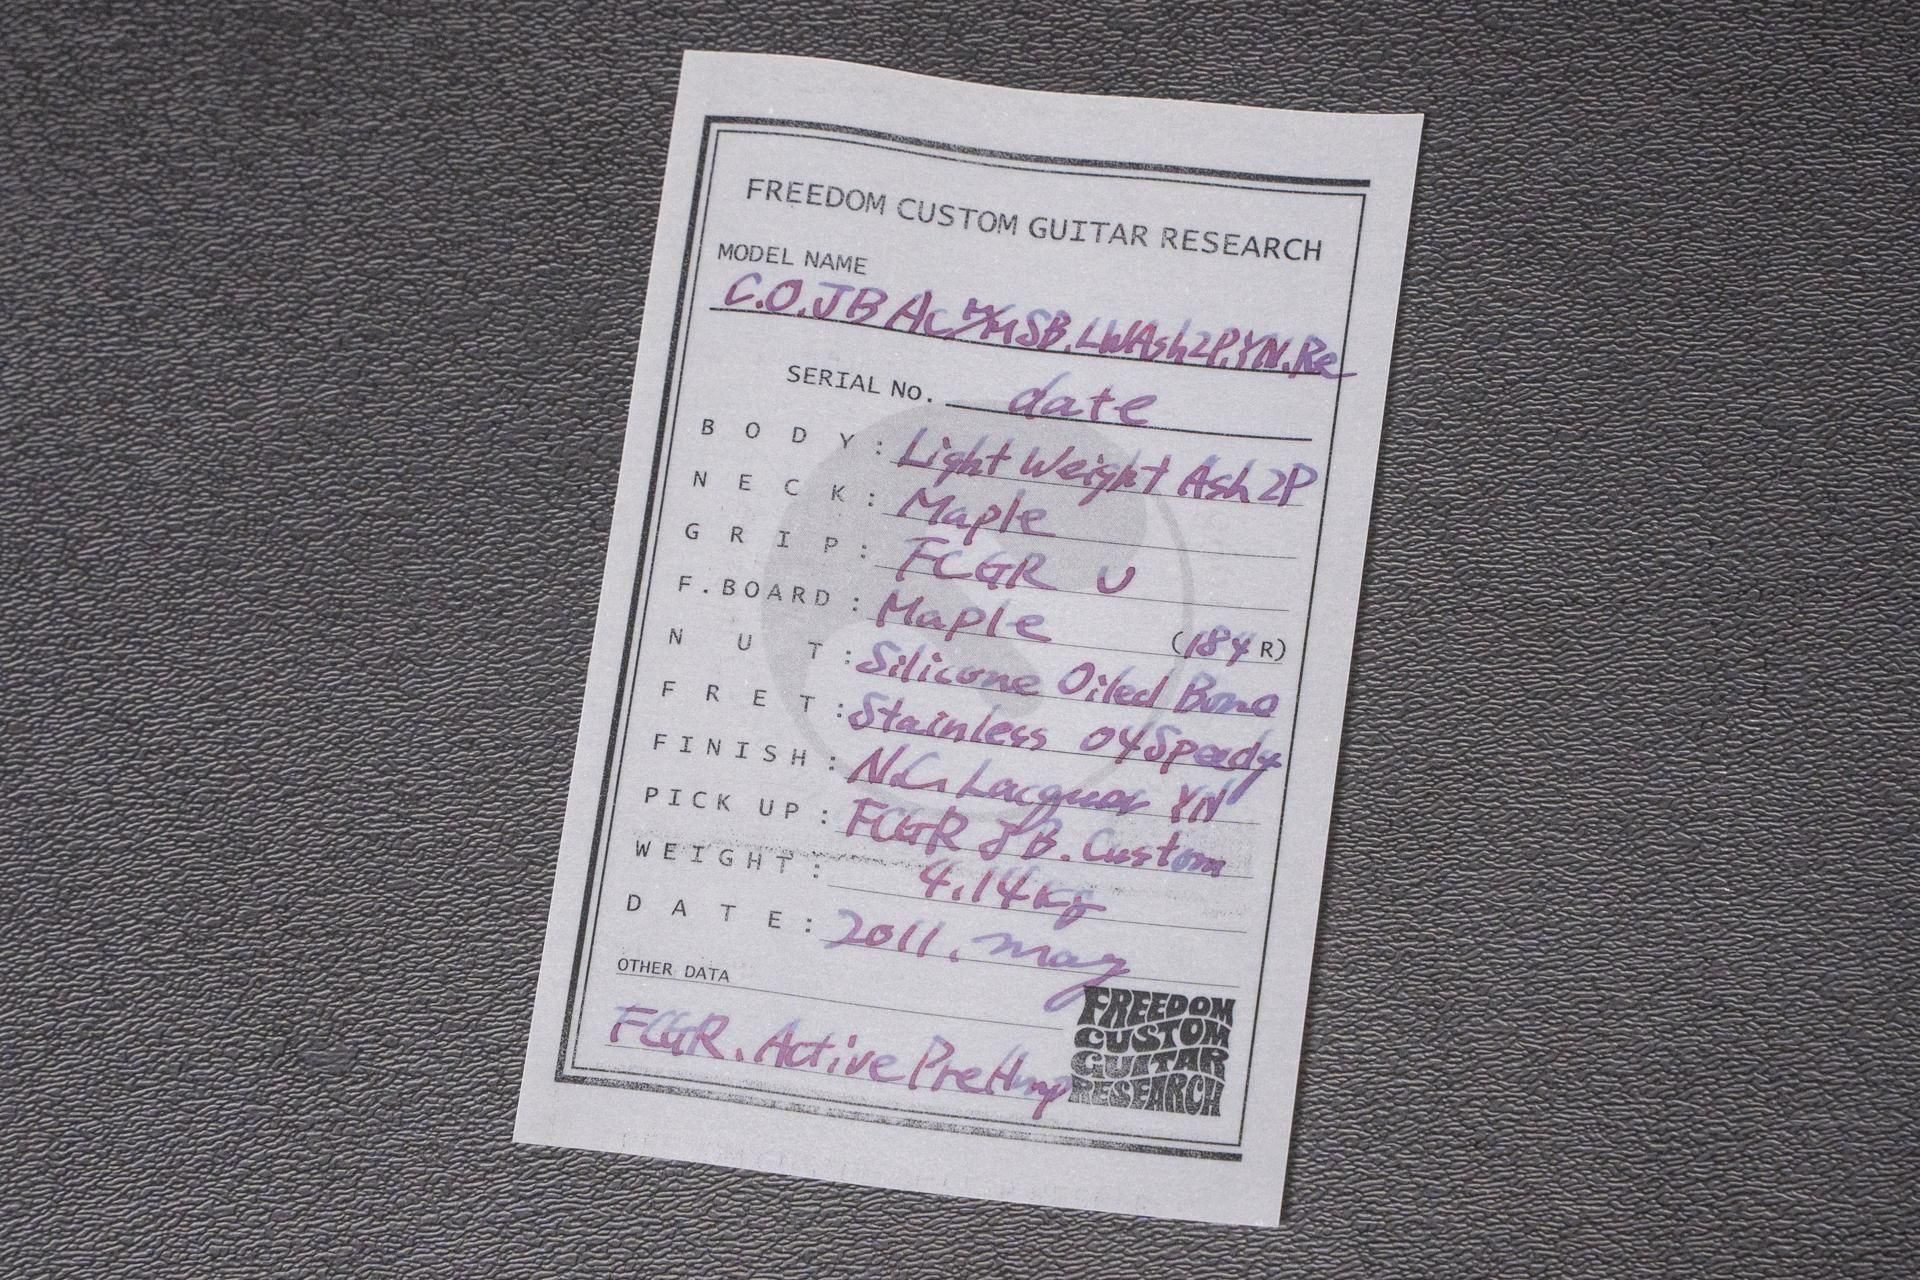 FREEDOM CUSTOM GUITAR RESEARCH
MODEL NAME
C.O.JB Ac M/M SB.LWAsh2P.YN.Re
SERIAL No. date
BODY: Light Weight Ash 2P
NECK: Maple
GRIP: FCGR U
F.BOARD: Maple (184R)
NUT: Silicone Oiled Bone
FRET: Stainless 04Speedy
FINISH: N.C. Lacquer YN
PICK UP: FCGR J.B. Custom
WEIGHT: 4.14kg
DATE: 2011. may
OTHER DATA
FCGR. Active PreAmp
FREEDOM
CUSTOM
GUITAR
RESEARCH